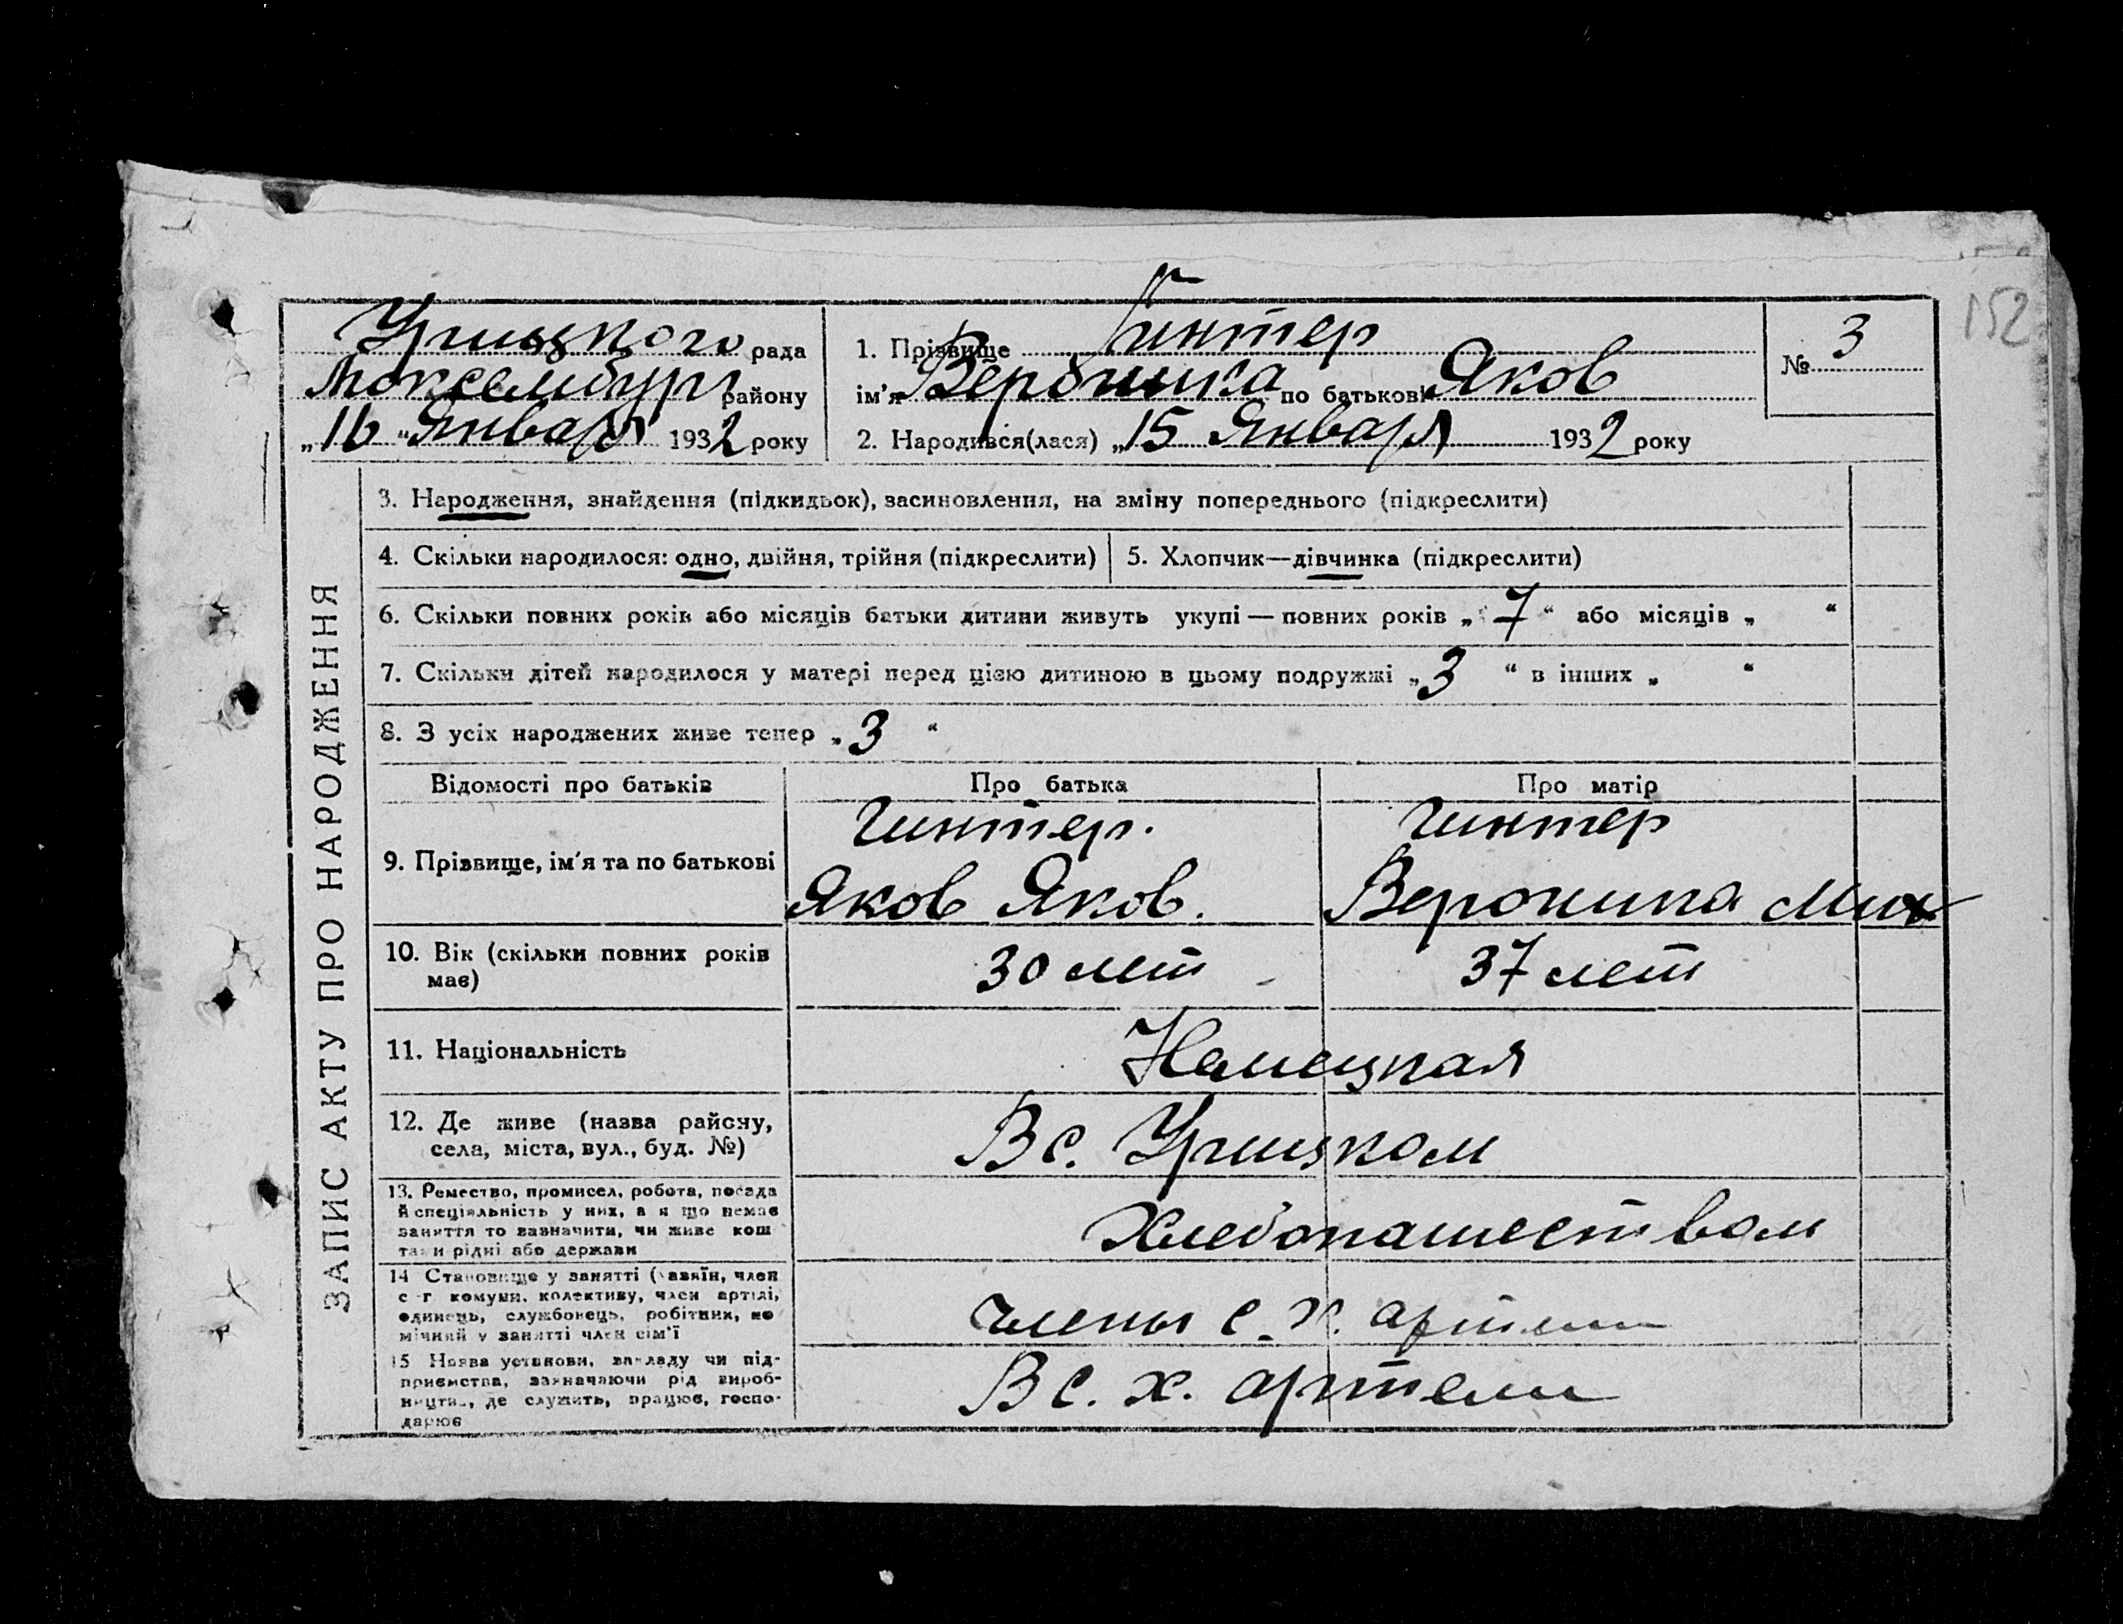 152
Урицкого рада
Люксембург району
„16 “ Января 1932 року
1. Прізвище Гинтер
ім'я Вероника по батькові Яков
2. Народився(лася) „15 Января 1932 року
№ 3
ЗАПИС АКТУ ПРО НАРОДЖЕННЯ
3. Народження, знайдення (підкидьок), засиновлення, на зміну попереднього (підкреслити)
4. Скільки народилося: одно, двійня, трійня (підкреслити)
5. Хлопчик—дівчинка (підкреслити)
6. Скільки повних років або місяців батьки дитини живуть укупі — повних років „ 7 “ або місяців „ “
7. Скільки дітей народилося у матері перед цією дитиною в цьому подружжі „ 3 “ в інших „ “
8. З усіх народжених живе тепер „ 3 “
Відомості про батьків
Про батька
Про матір
9. Прізвище, ім'я та по батькові
Гинтер.
Яков Яков.
Гинтер
Вероника Мих
10. Вік (скільки повних років
має)
30 лет
37 лет
11. Національність
Немецкая
12. Де живе (назва району,
села, міста, вул., буд. №)
В с. Урицком
13. Ремество, промисел, робота, посада
й спеціяльність у них, а я що немає
заняття то зазначити, чи живе кош
та и рідні або держави
Хлебопашеством
14 Становище у занятті (хазяїн, член
с-г. комуни, колективу, член артілі,
одинець, службовець, робітник, по
мічний у занятті член сім'ї
члены с. х. артели
15 Назва установи, закладу чи під-
приємства, зазначаючи рід вироб-
ництва, де служить, працює, госпо-
дарює
В с. х. артели